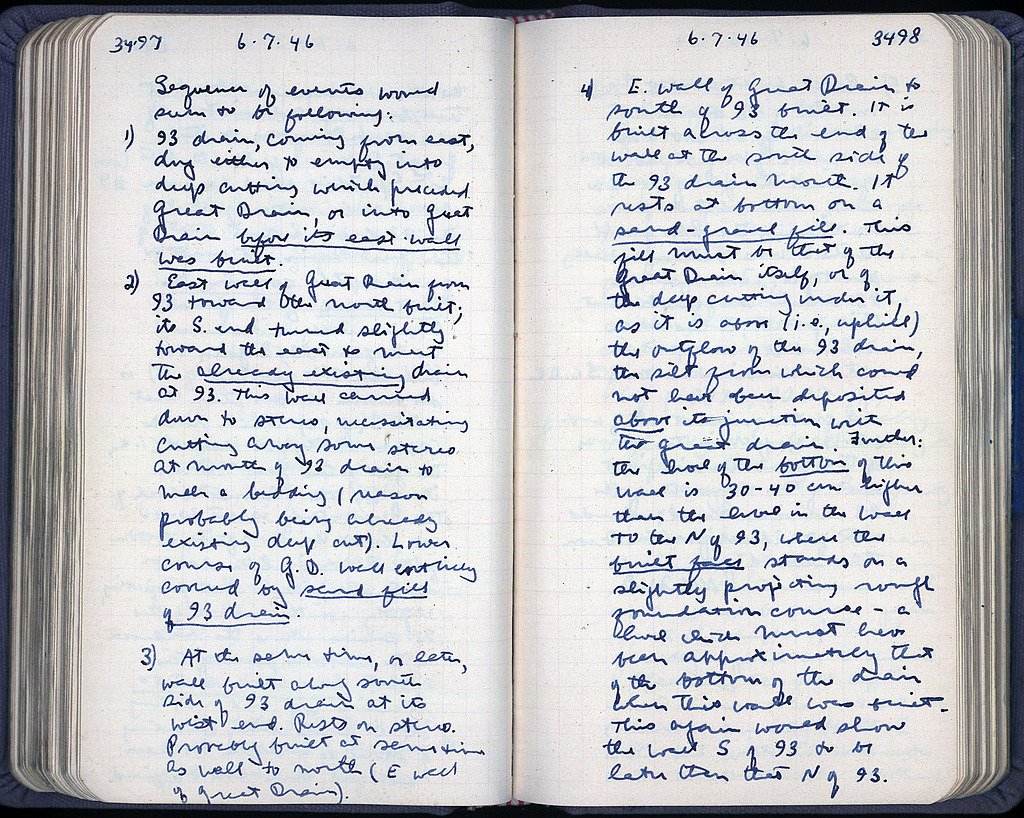 3497
6·7·46
Sequence of events would
seem to be following:
1) 93 drain, coming from east,
dug either to empty into
deep cutting which preceded
Great Drain, or into Great
Drain before its east wall
was built.
2) East wall of Great Drain from
93 toward the north built;
its S. end turned slightly
toward the east to meet
the already existing drain
at 93. This wall carried
down to stereo, necessitating
cutting away some stereo
at mouth of 93 drain to
make a bedding (reason
probably being already
existing deep cut). Lower
course of G.D. wall entirely
covered by sand fill
of 93 drain.
3) At the same time, or later,
wall built along south
side of 93 drain at its
west end. Rests on stereo.
Probably built at same time
as wall to north (E wall
of Great Drain).
6·7·46
3498
4) E. wall of Great Drain to
south of 93 built. It is
built across the end of the
wall at the south side of
the 93 drain mouth. It
rests at bottom on a
sand-gravel fill. This
fill must be that of the
Great Drain itself, or of
the deep cutting under it,
as it is above (i.e., uphill)
the outflow of the 93 drain,
the silt from which could
not have been deposited
above its junction with
the great drain. Further:
the level of the bottom of this
wall is 30-40 cm higher
than the level in the wall
to the N of 93, where the
built face stands on a
slightly projecting rough
foundation course - a
level which must have
been approximately that
of the bottom of the drain
when this wall was built.
This again would show
the wall S of 93 to be
later than that N of 93.